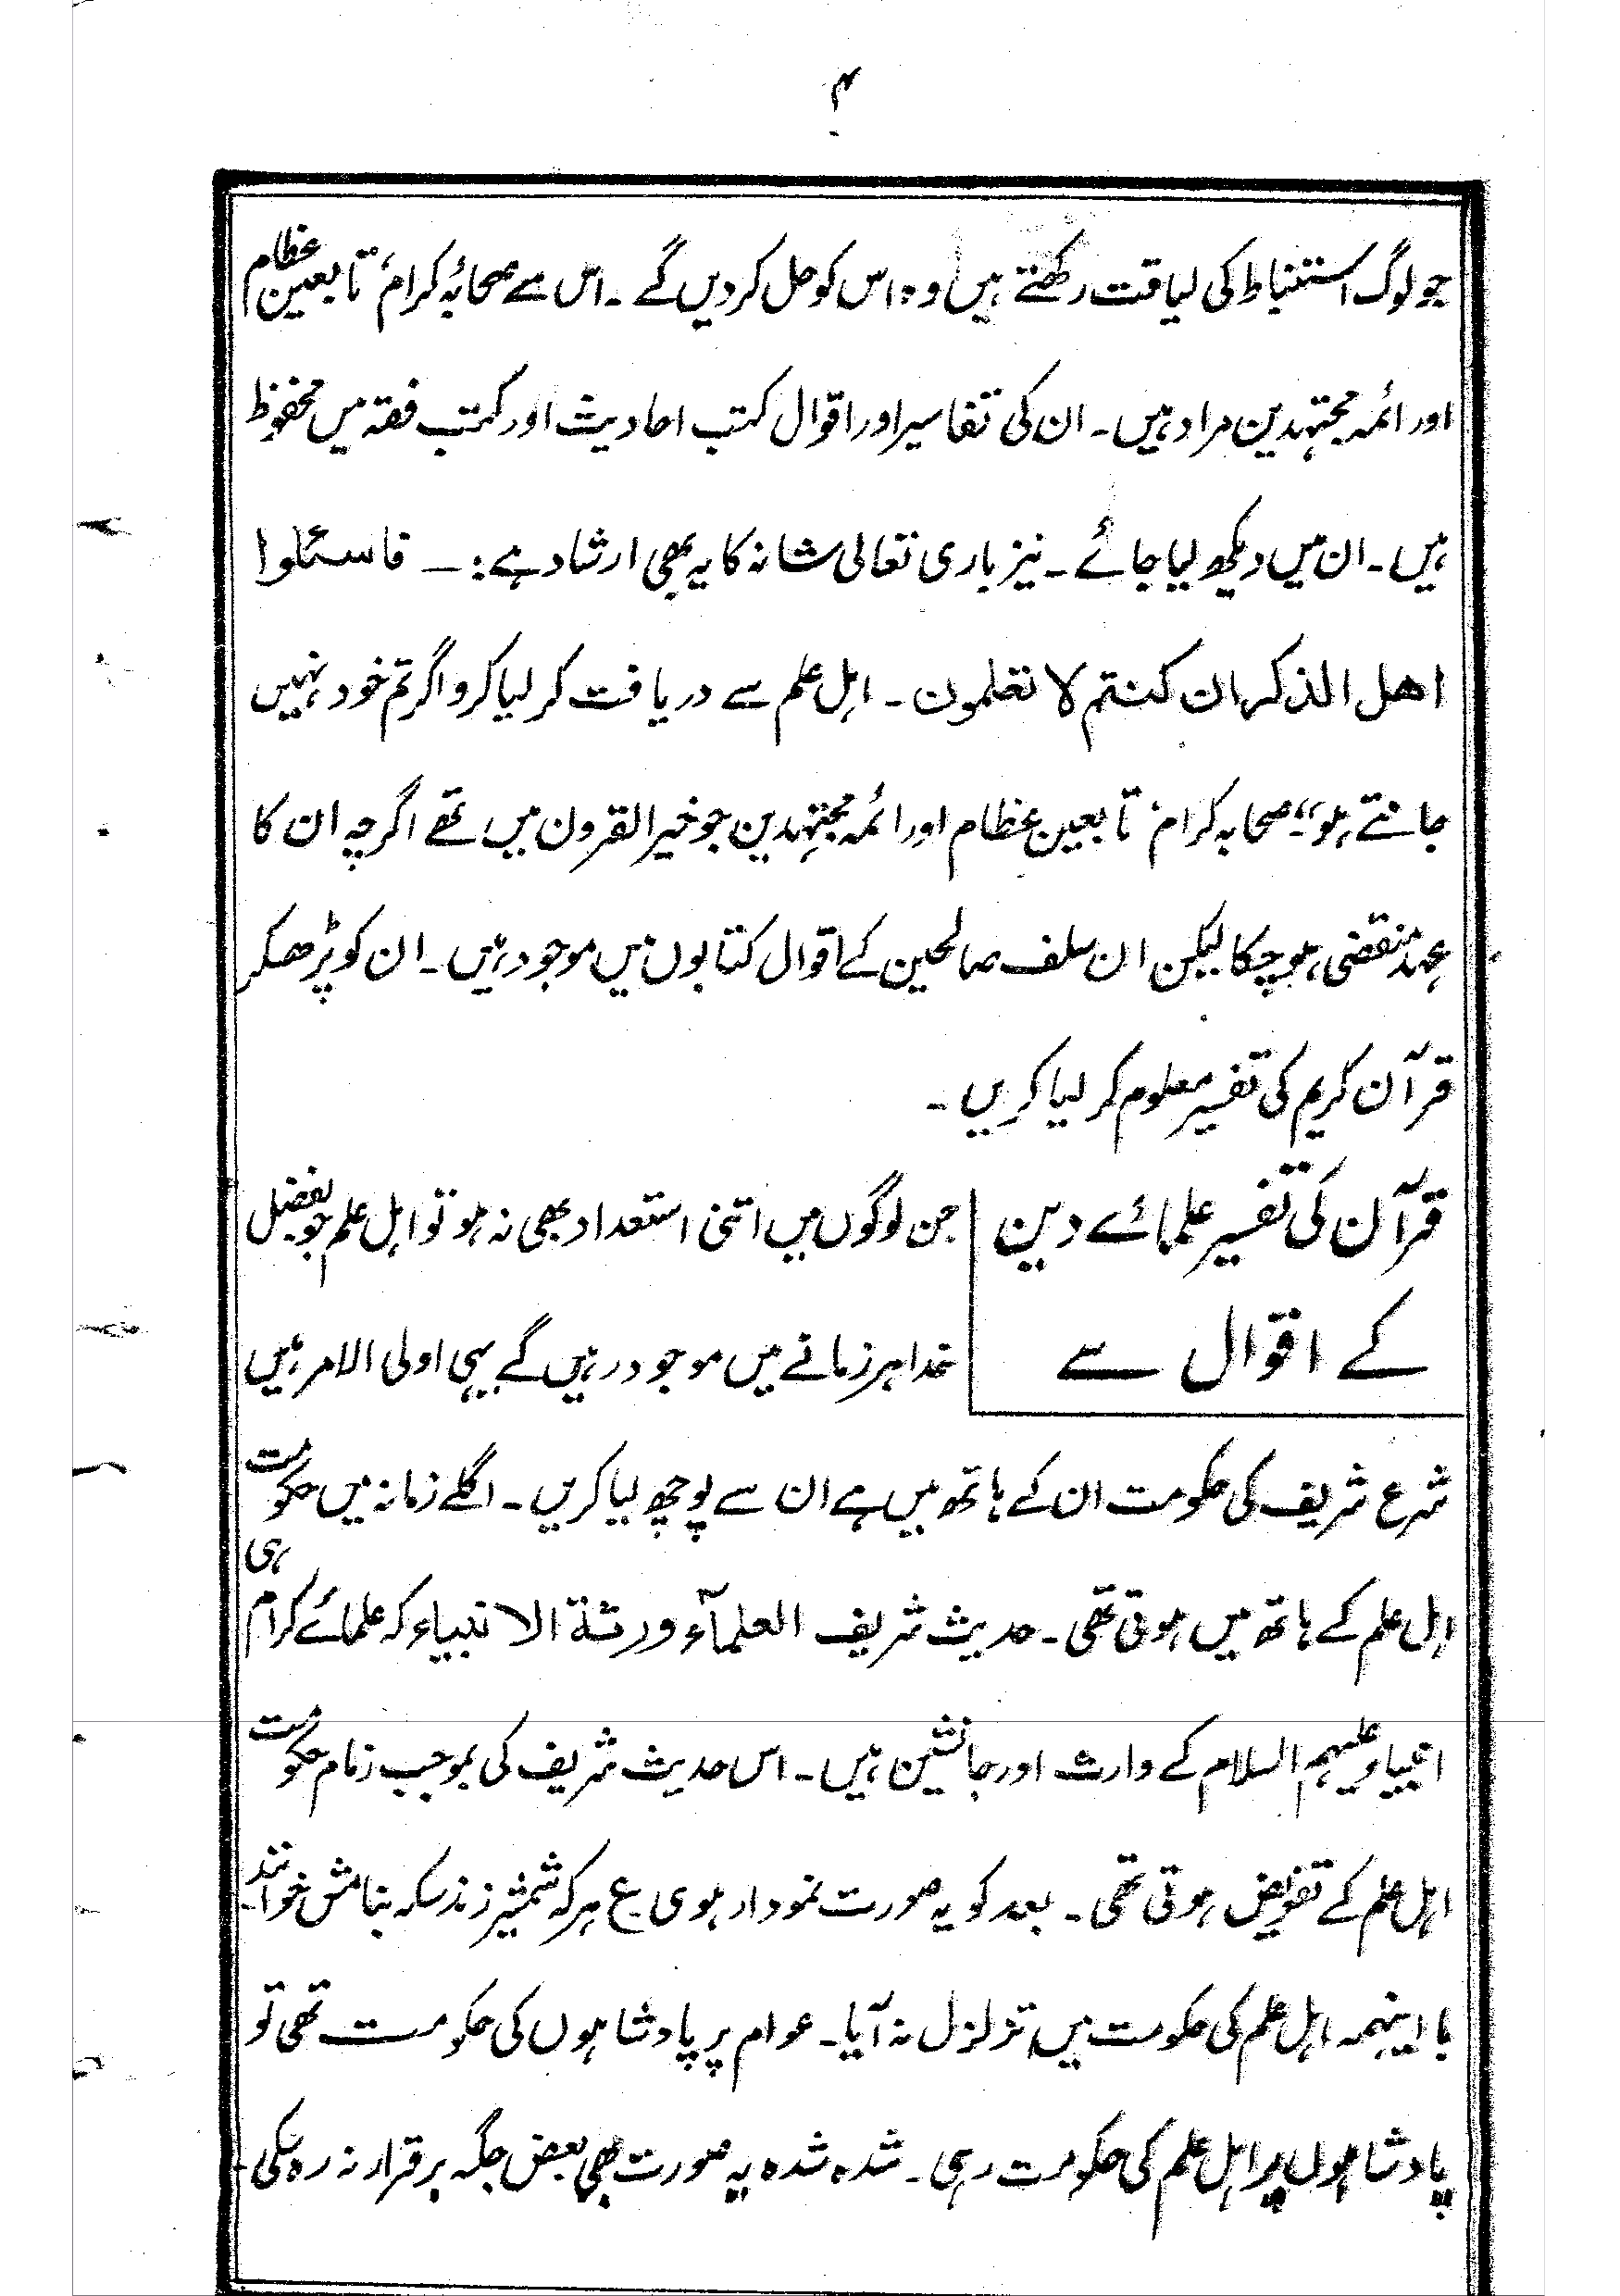 ۴
جو لوگ استنباط کی لیاقت رکھتے ہیں وہ اس کو حل کردیں گے ۔ اس سے صحابۂ کرام، تابعین عظام
اور ائمہ مجتہدین مراد ہیں۔ ان کی تفاسیر اور اقوال کتب احادیث اور کتب فقہ میں محفوظ
ہیں۔ ان میں دیکھ لیا جائے ۔ نیز باری تعالی شانہ کا یہ بھی ارشاد ہے :۔ فاسئلوا
اھل الذکر ان کنتم لا تعلمون ۔ اہل علم سے دریافت کر لیا کرو اگر تم خود نہیں
جانتے ہو“۔ صحابہ کرام تابعین عظام اور ائمہ مجتہدین جو خیر القرون میں تھے اگرچہ ان کا
عہد منقضی ہو چکا لیکن ان سلف صالحین کے اقوال کتابوں میں موجود ہیں۔ ان کو پڑھکر
قرآن کریم کی تفسیر معلوم کر لیا کریں ۔
قرآن کی تفسیر علمائے دین
کے اقوال سے
جن لوگوں میں اتنی استعداد بھی نہ ہو تو اہل علم جو بفضل
خدا ہر زمانے میں موجود رہیں گے یہی اولی الامر ہیں
شرع شریف کی حکومت ان کے ہاتھ میں ہے ان سے پوچھ لیا کریں ۔ اگلے زمانہ میں حکومت
اہل علم کے ہاتھ میں ہوتی تھی ۔ حدیث شریف العلمآء ورثۃ الانبیاء کہ علمائے کرام ہی
انبیاء علیہم السلام کے وارث اور جانشین ہیں ۔ اس حدیث شریف کی بموجب زمام حکومت
اہل علم کے تفویض ہوتی تھی ۔ بعد کو یہ صورت نمودار ہوی ع ہر کہ شمشیر زند سکہ بنامش خوانند۔
با اینہمہ اہل علم کی حکومت میں تزلزل نہ آیا۔ عوام پر پادشاہوں کی حکومت تھی تو
پادشاہوں پر اہل علم کی حکومت رہی ۔ شدہ شدہ یہ صورت بھی بعض جگہ برقرار نہ رہ سکی۔